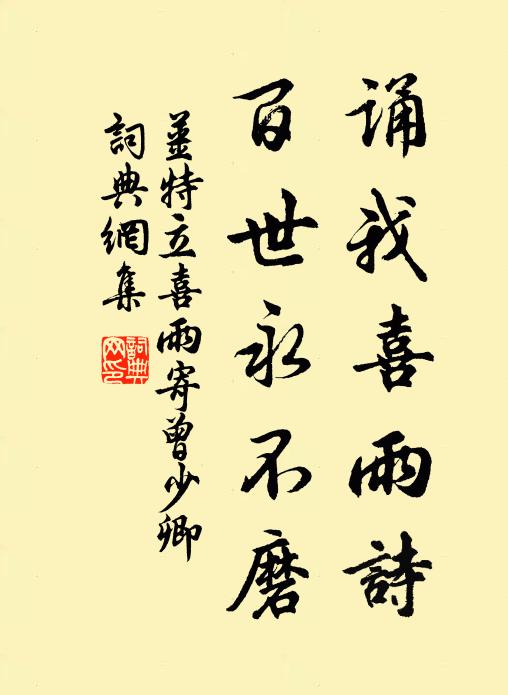 诵我喜雨詩
百世永不磨
姜特立喜雨寄曾少卿
詞典網集
詞典网印